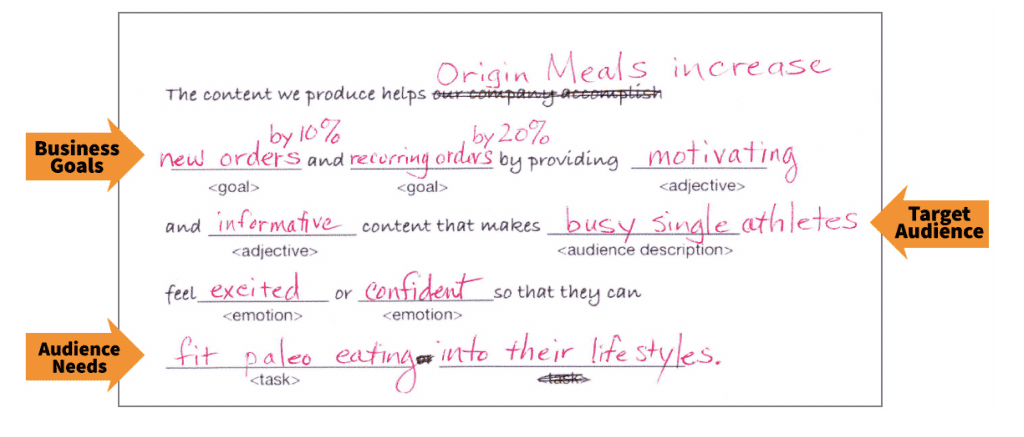 Origin Meals increase
The content we produce helps our company accomplish
by 10% by 20%
Business Goals
new orders and recurring orders by providing motivating
<goal> <goal> <adjective>
and informative content that makes busy single athletes
Target Audience
<adjective> <audience description>
feel excited or confident so that they can
<emotion> <emotion>
Audience Needs
fit paleo eating or into their lifestyles.
<task> <task>